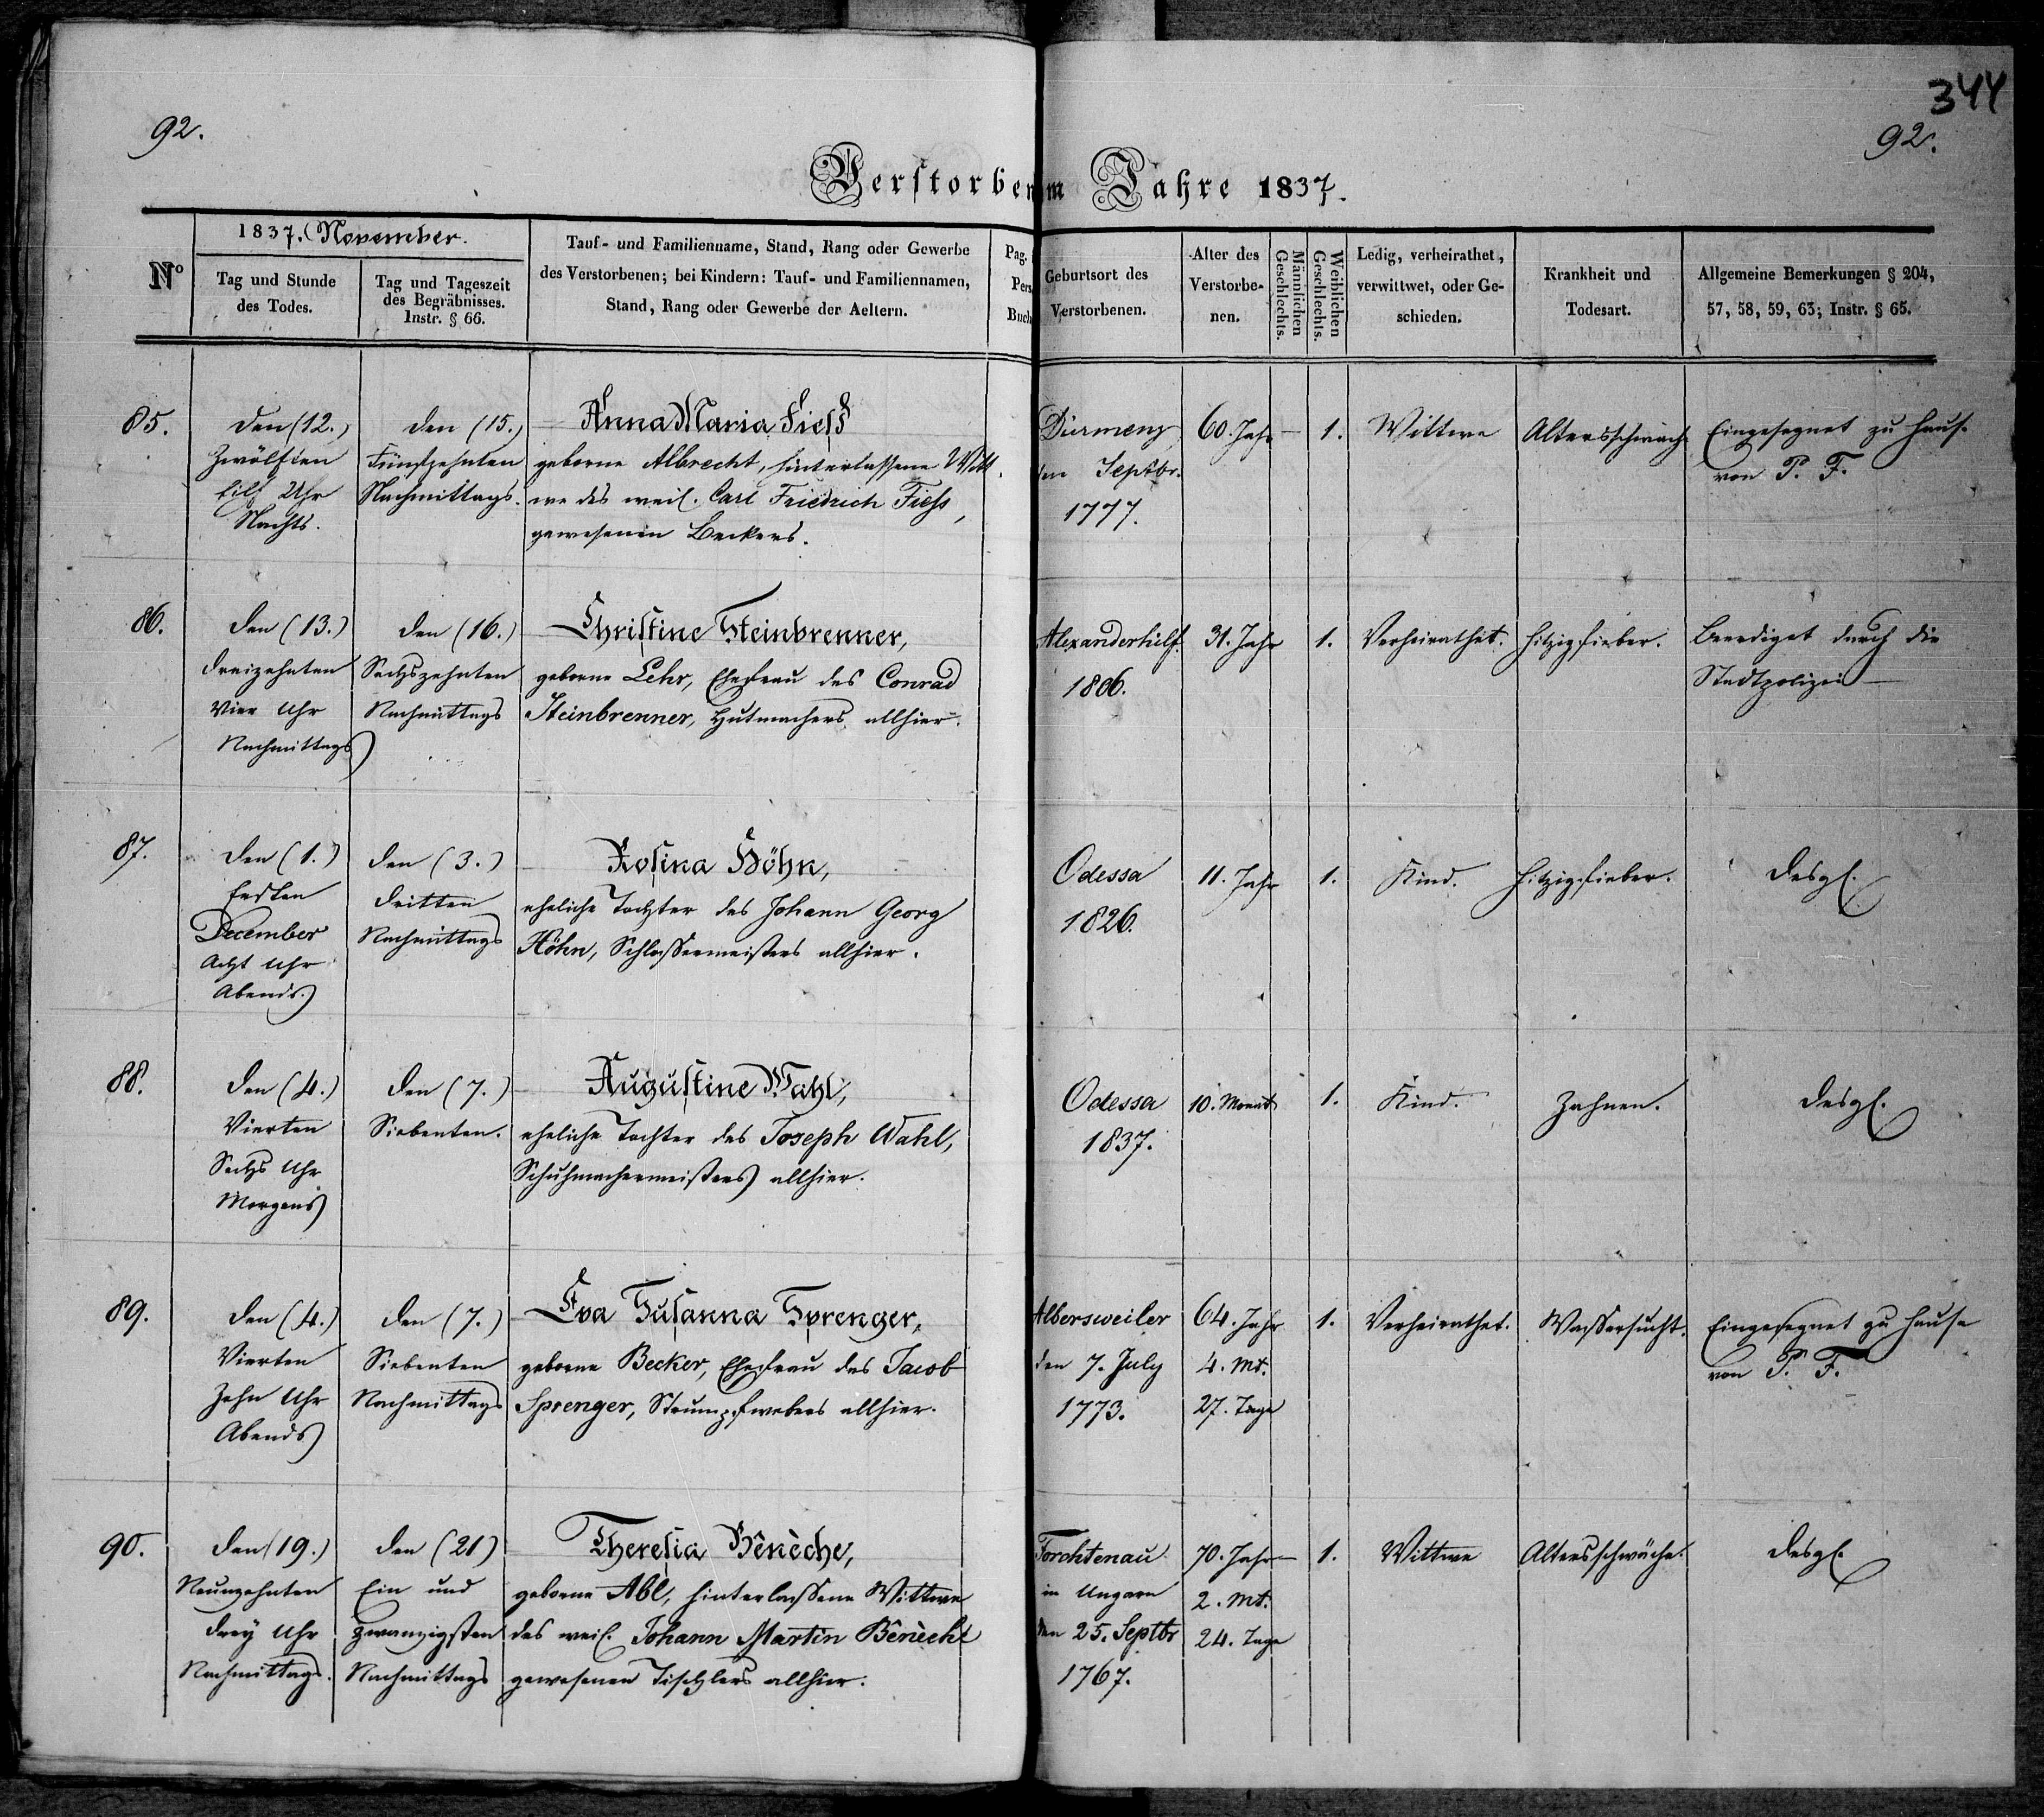 344
92.
92.
Verstorben
m Jahre 1837.
No
1837. November.
Tag und Stunde
des Todes.
Tag und Tageszeit
des Begräbnisses.
Instr. § 66.
Tauf- und Familienname, Stand, Rang oder Gewerbe
des Verstorbenen; bei Kindern: Tauf- und Familiennamen,
Stand, Rang oder Gewerbe der Aeltern.
Pag.
Pers.
Buch
Geburtsort des
Verstorbenen.
Alter des
Verstorbe-
nen.
Männlichen
Geschlechts.
Weiblichen
Geschlechts.
Ledig, verheirathet,
verwittwet, oder Ge-
schieden.
Krankheit und
Todesart.
Allgemeine Bemerkungen § 204,
57, 58, 59, 63; Instr. § 65.
85.
den (12.)
Zwölften
Eilf Uhr
Nachts.
den (15.)
Fünfzehnten
Nachmittags.
Anna Maria Fieß
geborne Albrecht, hinterlassene Witt
we des weil. Carl Friedrich Fieß,
gewesenen Beckers.
Dürmenz
den Septbr.
1777.
60. Jahr
—
1.
Wittwe
Altersschwäche
Eingesegnet zu Hause
von P. F.
86.
den (13.)
dreizehnten
Vier Uhr
Nachmittags
den (16.)
Sechszehnten
Nachmittags
Christine Steinbrenner,
geborne Lehr, Ehefrau des Conrad
Steinbrenner, Hutmachers allhier.
Alexanderhilf.
1806.
31. Jahr
1.
Verheirathet.
Hitzigfieber.
Beerdiget durch die
Stadtpolizei —
87.
den (1.)
Ersten
December
Acht Uhr
Abends.
den (3.)
dritten
Nachmittags
Rosina Höhn,
eheliche Tochter des Johann Georg
Höhn, Schlossermeisters allhier.
Odessa
1826.
11. Jahr
1.
Kind.
Hitzigfieber.
desgl.
88.
den (4.)
Vierten
Sechs Uhr
Morgens
den (7.)
Siebenten.
Augustine Wahl,
eheliche Tochter des Joseph Wahl,
Schuhmachermeisters allhier.
Odessa
1837.
10. Monat
1.
Kind.
Zahnen.
desgl.
89.
den (4.)
Vierten
Zehn Uhr
Abends
den (7.)
Siebenten
Nachmittags
Eva Susanna Sprenger,
geborne Becker, Ehefrau des Jacob
Sprenger, Strumpfwebers allhier.
Albersweiler
den 7. July
1773.
64. Jahr
4. Mt.
27. Tage
1.
Verheirathet.
Wassersucht.
Eingesegnet zu Hause
von P. F.
90.
den (19.)
Neunzehnten
drey Uhr
Nachmittags.
den (21)
Ein und
zwanzigsten
Nachmittags
Theresia Bênèche,
geborne Abl, hinterlassene Wittwe
des weil. Johann Martin Bênèche
gewesenen Tischlers allhier.
Forchtenau
in Ungarn
den 25. Septbr
1767.
70. Jahr —
2. Mt.
24. Tage
1.
Wittwe
Altersschwäche.
desgl.